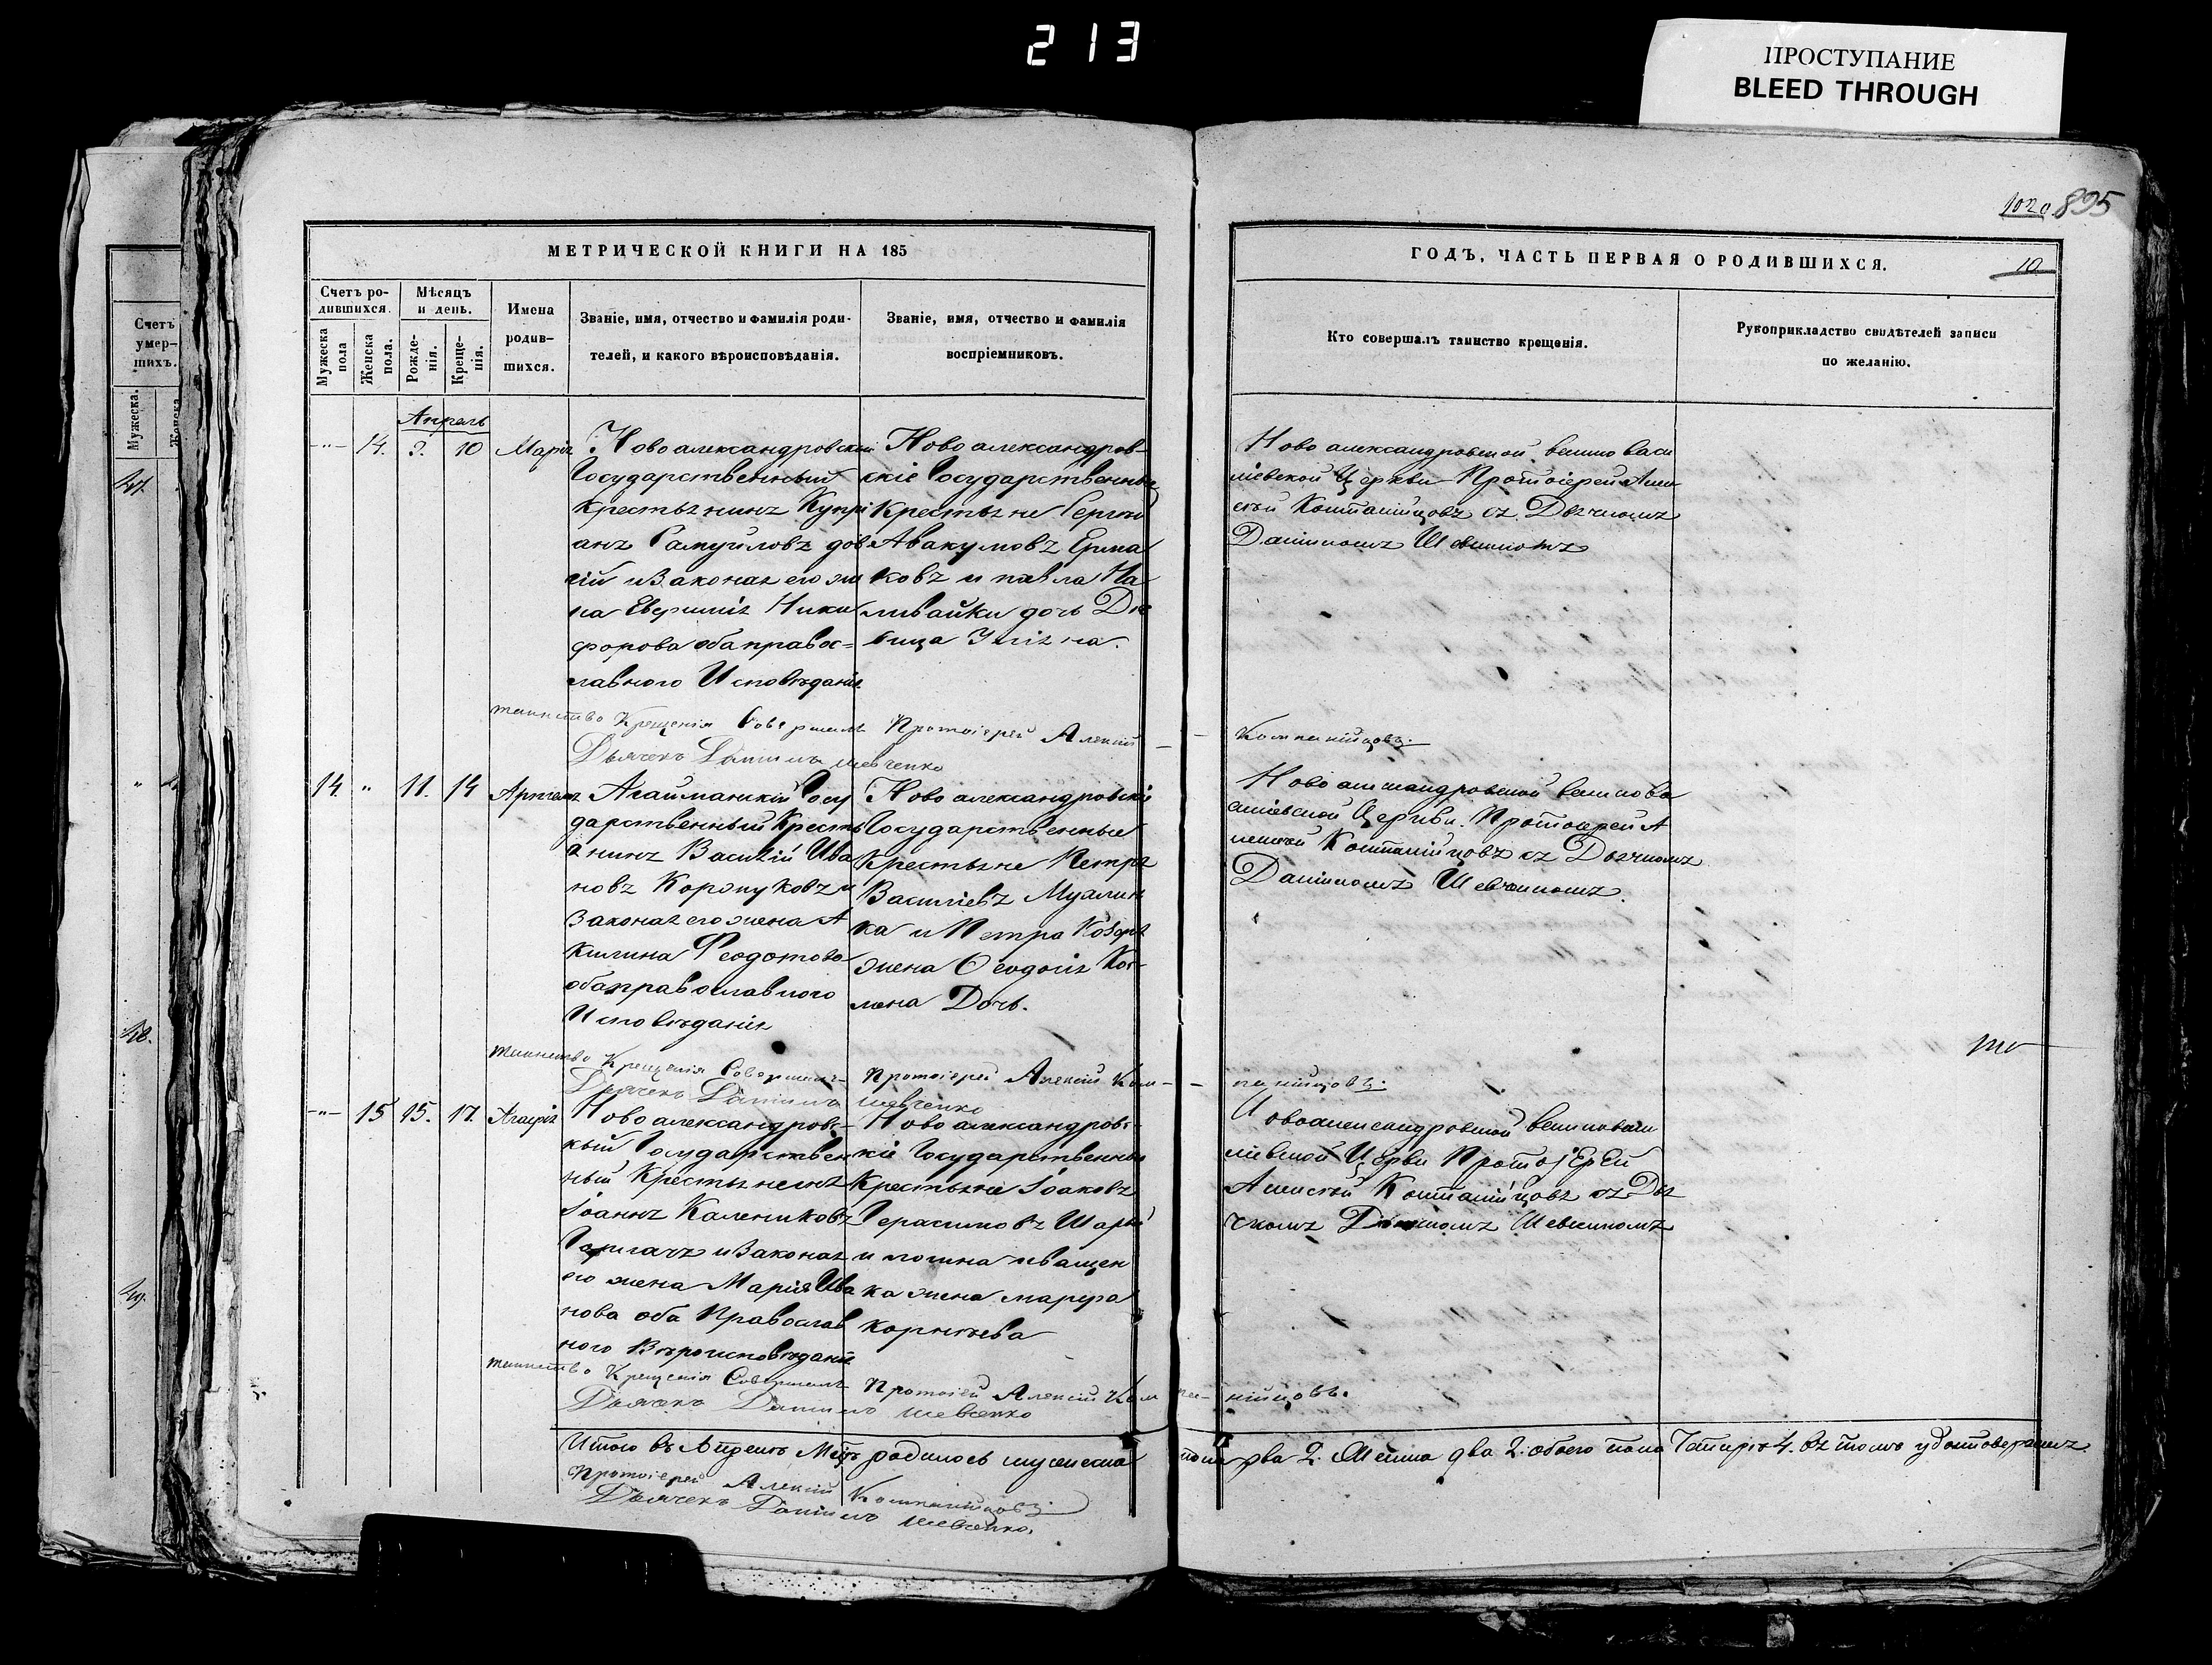 213
ПРОСТУПАНИЕ
BLEED THROUGH
1020 895
МЕТРИЧЕСКОЙ КНИГИ НА 185
ГОДЪ, ЧАСТЬ ПЕРВАЯ О РОДИВШИХСЯ.
10
Счетъ умер-
шихъ.
Мужеска.
Женска
47.
48.
49.
Счетъ ро-
дившихся.
Мужеска пола
Женска пола.
Мѣсяцъ
и день.
Рожде-
нія.
Креще-
нія.
Имена
родив-
шихся.
Званіе, имя, отчество и фамилія роди-
телей, и какого вѣроисповѣданія.
Званіе, имя, отчество и фамилія
воспріемниковъ.
Кто совершалъ таинство крещенія.
Рукоприкладство свидѣтелей записи
по желанію.
Апрель
-"- 14. 3. 10 Марія
Новоалександровскій
Государственный
Крестьянинъ Купрі
анъ Самуиловъ дов
гій и Законая его же
на Евфимія Ники
форова оба правос=
лавного Исповѣданія
Новоалександров-
скіе Государственные
Крестьяне Сергѣй
Авакумовъ Ерма
ковъ и павла На
ливайки дочь Дѣ
вица Уліяна.
Новоалександровской великоваси
ліевской Церкви Протоіерей Але
ксѣй Компанійцовъ съ Дьячкомъ
Даніиломъ Шевченкомъ
таинство Крещенія Совершалъ Протоіерей Алексій
Компанійцовъ.
Дьячекъ Даніилъ шевченко
14. " 11. 14 Артемъ
Агайманскій Госу
дарственный Кресть
янинъ Василій Ива
новъ Коропуковъ и
Законая его жена А
килина Феодотова
оба православного
Исповѣданія
Новоалександровскіе
Государственные
Крестьяне Петръ
Васильевъ Мухлын
ка и Петра Козаря
жена Феодосія Кос-
мена Дочь.
Новоалександровской великова
сліевской Церкви. Протоіерей А
лексѣй Компанійцовъ съ Дьячкомъ
Даніиломъ Шевченкомъ.
таинство Крещенія Совершалъ Протоіерей Алексій Ком-
панійцовъ.
Дьячекъ Даніилъ шевченко
-"- 15 15. 17. Агафія
Новоалександровс-
кый Государствен
ный Крестьянинъ
Іоаннъ Калениковъ
и Законая
его жена Марія Ива
нова оба Православ
ного Вѣроисповѣданія
Новоалександровс-
кіе Государственные
Крестьяне Іоаковъ
Герасимовъ Шарый
и логина иващен
ка жена марфа
корнѣева
Новоалександровской великоваси
ліевской Церкви Протоіерей
Алексѣй Компанійцовъ съ Дья
чкомъ Даніиломъ Шевченкомъ
таинство Крещенія Совершалъ Протоіерей Алексій Компа-
нійцовъ.
Дьячекъ Даніилъ шевченко
Итого въ Апрелѣ Мцѣ родилось мужеска пола два 2. Женска два 2. обоего пола Чатирѣ 4. въ томъ удостоверяемъ
Протоіерей Алексій Компанійцовъ.
Дьячекъ Даніилъ шевченко.